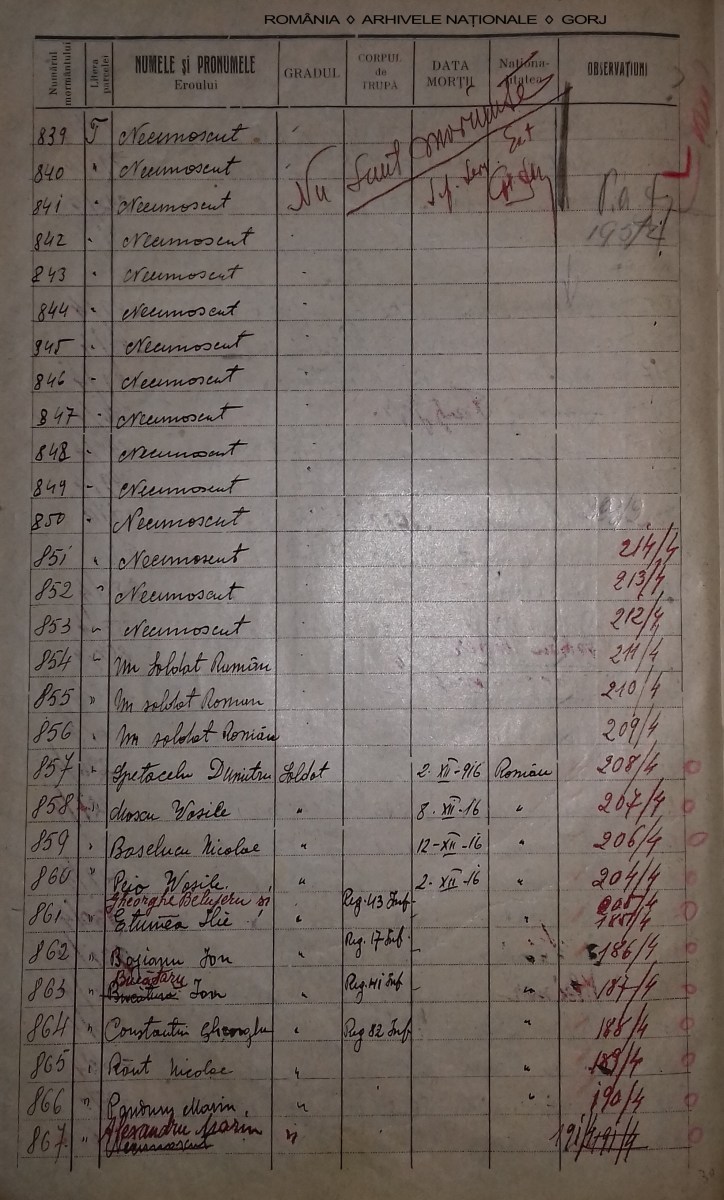 ROMÂNIA ◊ ARHIVELE NAȚIONALE ◊ GORJ
Numărul mormântului Litera parcelei NUMELE și PRONUMELE Eroului GRADUL CORPUL de TRUPĂ DATA MORȚII Naționalitatea OBSERVAȚIUNI
Nu sunt morminte
839 T Necunoscut
840 " Necunoscut
841 " Necunoscut
1957
842 " Necunoscut
843 " Necunoscut
844 " Necunoscut
845 " Necunoscut
846 " Necunoscut
847 " Necunoscut
848 " Necunoscut
849 " Necunoscut
850 " Necunoscut
851 " Necunoscut 214/4
852 " Necunoscut 213/4
853 " Necunoscut 212/4
854 " Un soldat Român 211/4
855 " Un soldat Roman 210/4
856 " Un soldat Român 209/4
857 " Dumitru Soldat 2-XII-916 Român 208/4
858 " Vasile " 8-XII-16 " 207/4
859 " Nicolae " 12-XII-16 " 206/4
860 " Vasile " 2-XII-16 " 204/4
Gheorghe și 205/4
861 " Ilie " Reg. 43 Inf. " 185/4
862 " Bojianu Ion Reg. 17 Inf. 186/4
Bucătaru
863 " Ion " Reg. 41 Inf " 187/4
864 " Constantin Gheorghe " Reg 82 Inf " 188/4
865 " Nicolae " " 189/4
866 " Panduru Marin " " 190/4
Alexandru Marin
867 " Necunoscut " 191/4 191/4